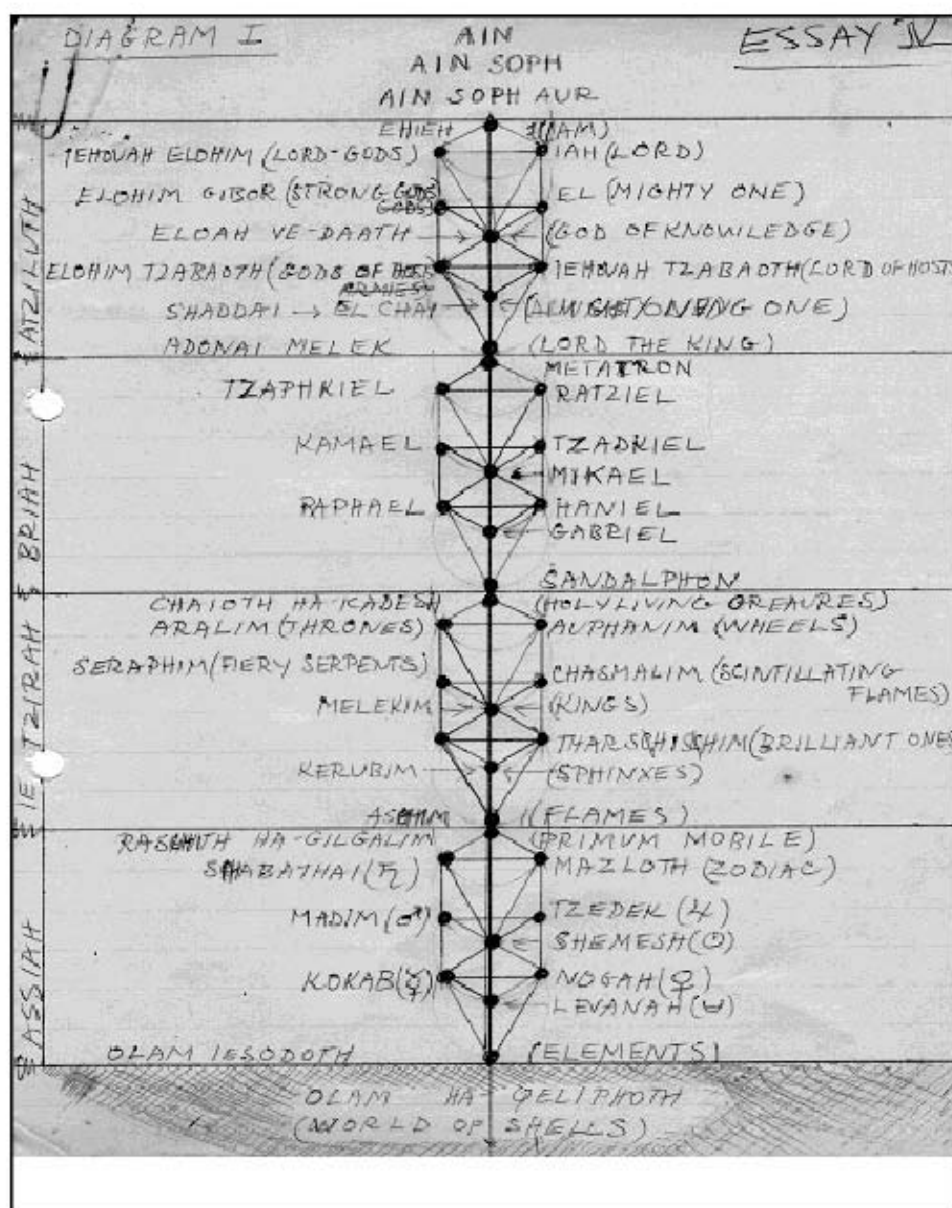 DIAGRAM I
ESSAY IV
AIN
AIN SOPH
AIN SOPH AUR
EHIEH (I AM)
IEHOVAH ELOHIM (LORD-GODS) IAH (LORD)
ELOHIM GIBOR (STRONG GODS) EL (MIGHTY ONE)
ELOAH VE-DAATH (GOD OF KNOWLEDGE)
ELOHIM TZABAOTH (GODS OF IEHOVAH TZABAOTH (LORD OF HOSTS
SHADDAI → EL CHAI ONE)
ADONAI MELEK (LORD THE KING)
ATZILUTH
METATRON
TZAPHKIEL RATZIEL
KAMAEL TZADKIEL
MIKAEL
RAPHAEL HANIEL
GABRIEL
SANDALPHON
BRIAH
CHAIOTH HA-KADESH (HOLY LIVING CREAURES)
ARALIM (THRONES) AUPHANIM (WHEELS)
SERAPHIM (FIERY SERPENTS) CHASMALIM (SCINTILLATING
FLAMES)
MELEKIM (KINGS)
THARSCHISCHIM (BRILLIANT ONES
KERUBIM (SPHINXES)
(FLAMES)
IETZIRAH
RASCHITH HA-GILGALIM (PRIMUM MOBILE)
SCHABATHAI (♄) MAZLOTH (ZODIAC)
MADIM (♂) TZEDEK (♃)
SHEMESH (☉)
KOKAB (☿) NOGAH (♀)
LEVANAH (☽)
OLAM IESODOTH (ELEMENTS)
ASSIAH
OLAM HA-QELIPHOTH
(WORLD OF SHELLS)